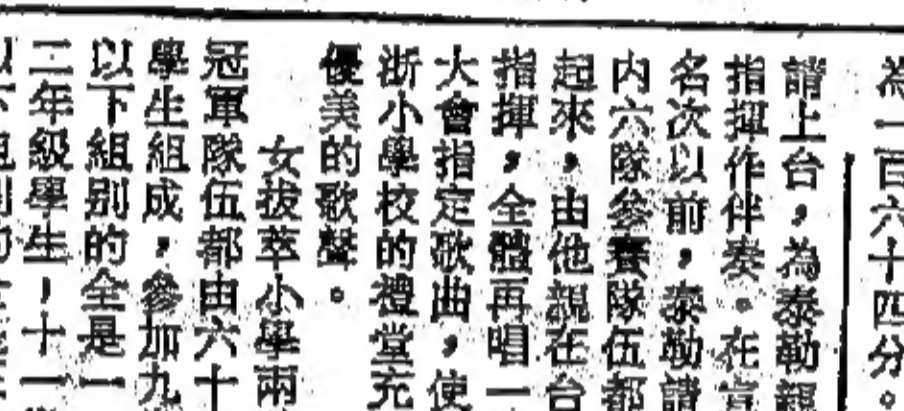 為一百六十四分。
請上台，為泰勒親
指揮作伴奏。在宣
名次以前，泰勒請
内六隊參賽隊伍都
起來，由他親在台
指揮，全體再唱一
大會指定歌曲，使
浙小學校的禮堂充
優美的歌聲。
女拔萃小學兩
冠軍隊伍都由六十
學生組成，參加九
以下組别的全是一
二年級學生，十一